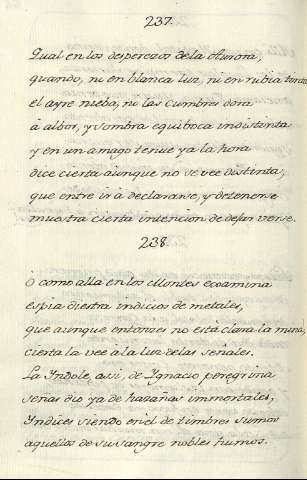 237.
Qual en los desperezos de la Aurora,
quando, ni en blanca luz, ni en rubia tinta
el ayre nieba, ni las cumbres dora
à albor, y sombra equiboca indistinta
y en un amago tenue ya la hora
dice cierta aunque no se vee distinta,
que entre ir à declararse, y detenerse
muestra cierta intencion de dejar verse.
238.
ò como allà en los Montes exsamina
espia diestra indicios de metales,
que aunque entonces no està clara la mina,
cierta la vee à la luz de las señales.
La Yndole, assi, de Ygnacio peregrina
señas diò ya de hazañas immortales,
Yndices siendo en èl de timbres sumos
aquellos de su sangre nobles humos.